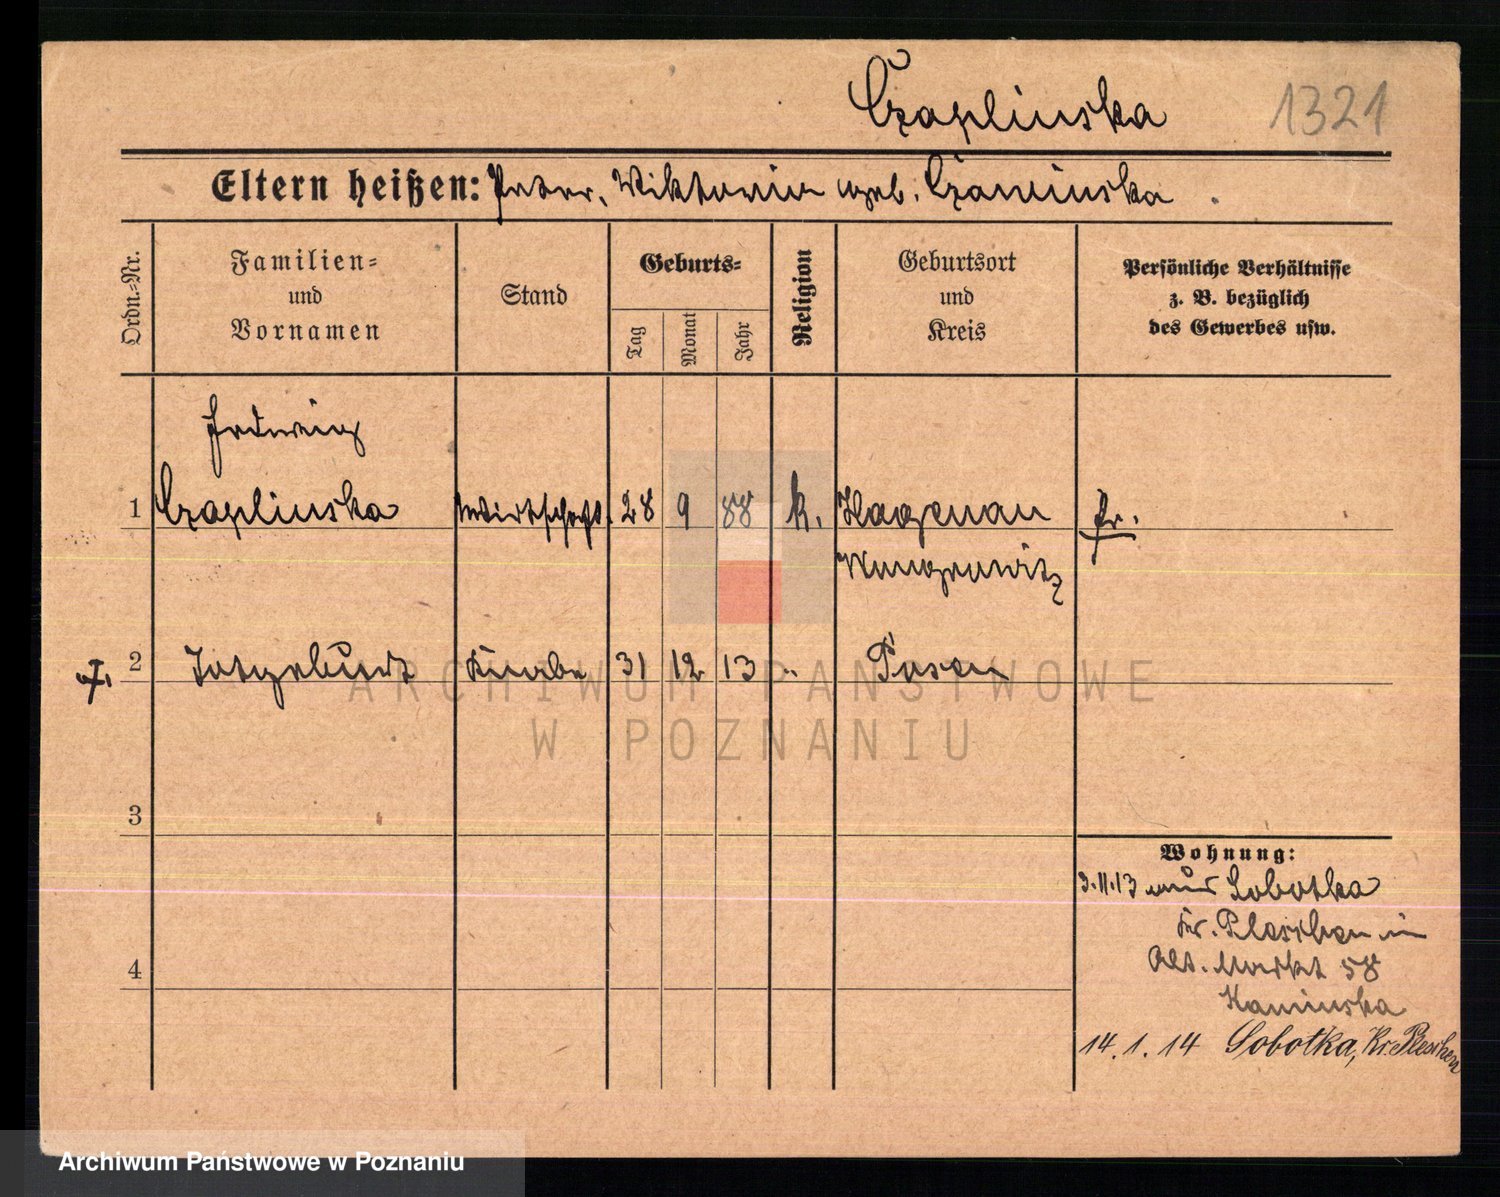 Czaplinska 1321
Eltern heißen: Peter, Wiktoria geb. Czaminska
Ordn.-Nr.
Familien-
und
Vornamen
Stand
Geburts-
Tag
Monat
Jahr
Religion
Geburtsort
und
Kreis
Persönliche Verhältnisse
z. B. bezüglich
des Gewerbes usw.
Hedwig
1 Czaplinska Wirtschaft. 28 9 88 k. Hagenau Pr.
Wongrowitz
2 Totgeburt Knabe 31 12 13 " Posen
3
4
Wohnung:
3.11.13 aus Sobotka
Kr. Pleschen in
Alt. Markt 58
Kaminska
14. 1. 14 Sobotka, Kr. Pleschen
ARCHIWUM PAŃSTWOWE
W POZNANIU
Archiwum Państwowe w Poznaniu